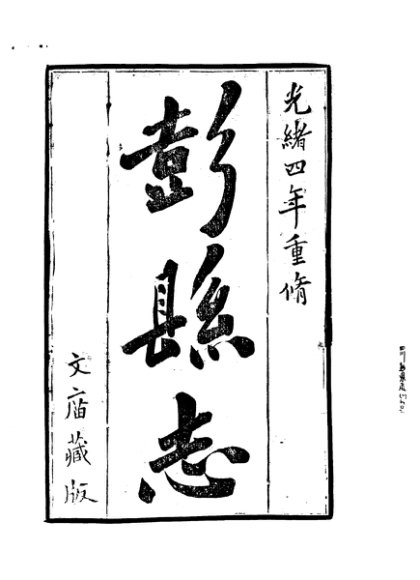 光緒四年重脩
彭縣志
文庿藏版